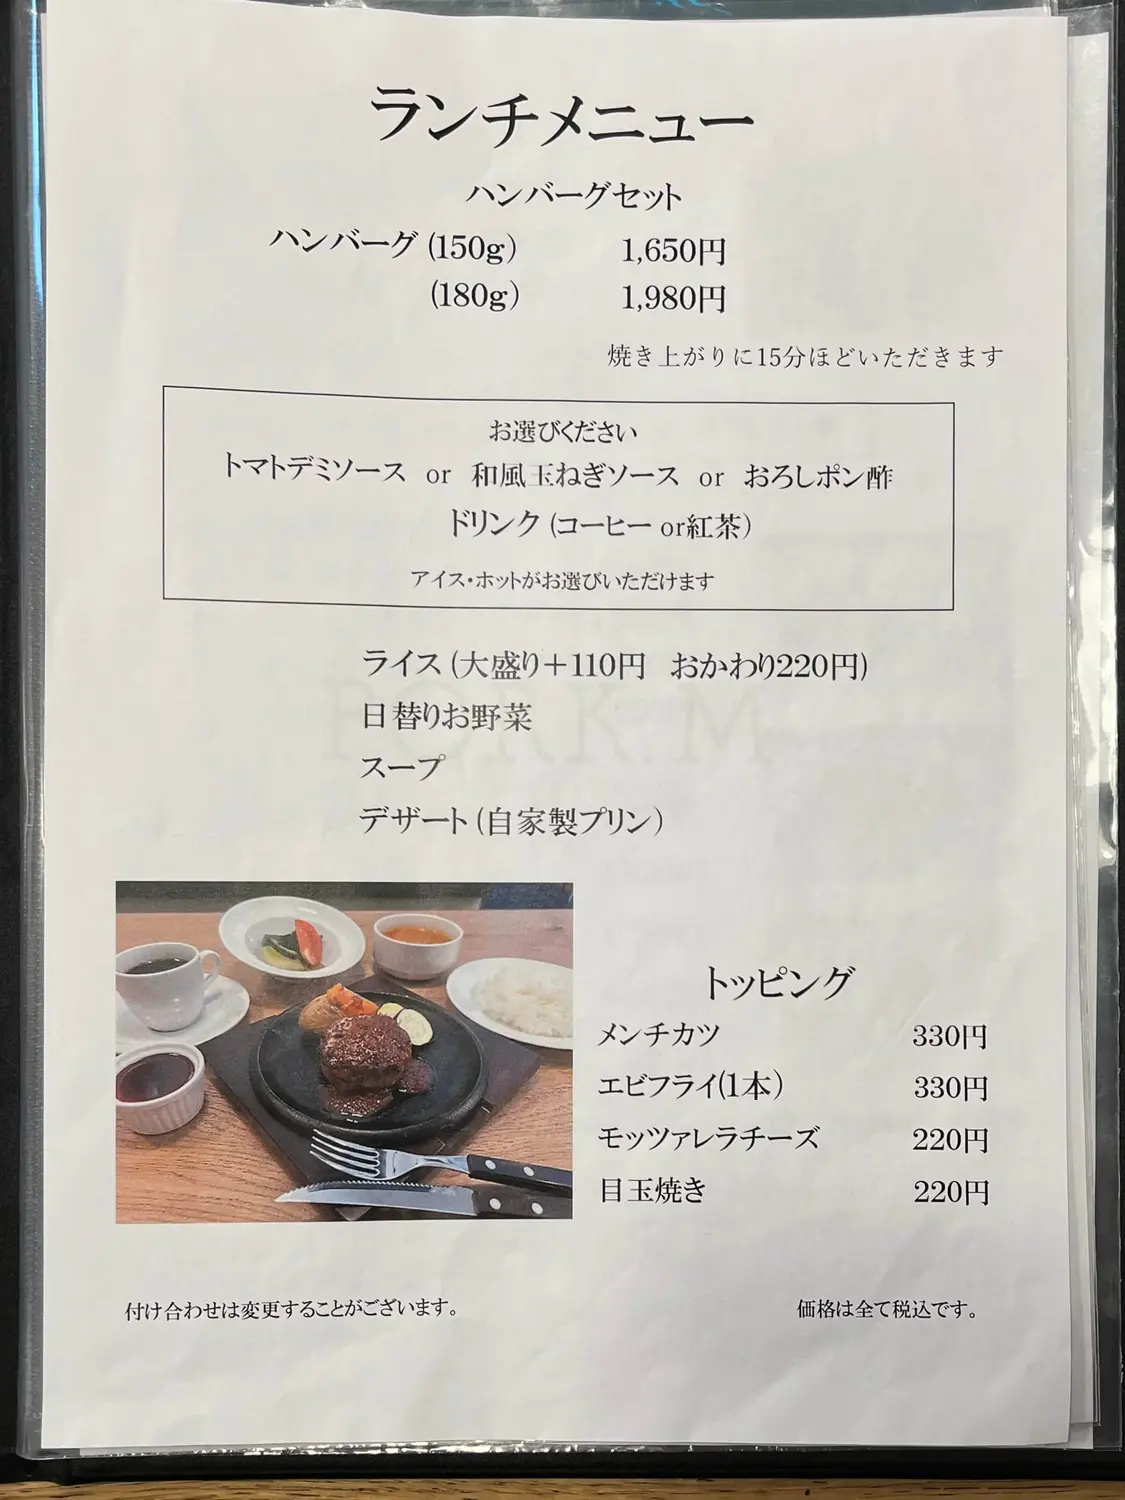 ランチメニュー
ハンバーグセット
ハンバーグ (150g) 1,650円
(180g) 1,980円
焼き上がりに15分ほどいただきます
お選びください
トマトデミソース or 和風玉ねぎソース or おろしポン酢
ドリンク (コーヒー or紅茶)
アイス・ホットがお選びいただけます
ライス (大盛り+110円 おかわり220円)
日替りお野菜
スープ
デザート (自家製プリン)
トッピング
メンチカツ 330円
エビフライ(1本) 330円
モッツァレラチーズ 220円
目玉焼き 220円
付け合わせは変更することがございます。
価格は全て税込です。